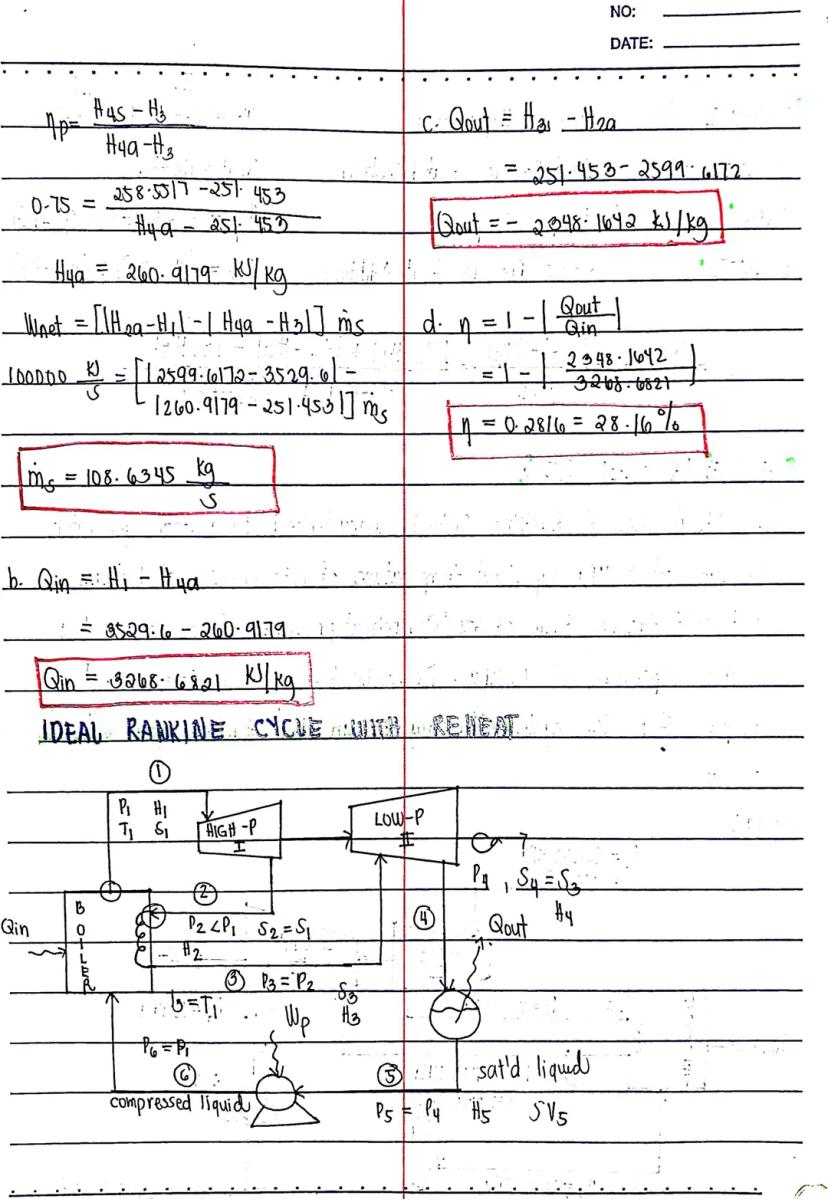 NO:
DATE:
ηp = H4s - H3
H4a - H3
0.75 = 258.5517 - 251.453
H4a - 251.453
H4a = 260.9179 kJ/kg
Wnet = [|H2a - H1| - |H4a - H3|] ṁs
100000 kJ/s = [|2599.6172 - 3529.6| -
|260.9179 - 251.453|] ṁs
ṁs = 108.6345 kg/s
b. Qin = H1 - H4a
= 3529.6 - 260.9179
Qin = 3268.6821 kJ/kg
c. Qout = H3 - H2a
= 251.453 - 2599.6172
Qout = - 2348.1642 kJ/kg
d. η = 1 - |Qout/Qin|
= 1 - |2348.1642/3268.6821|
η = 0.2816 = 28.16%
IDEAL RANKINE CYCLE WITH REHEAT
①
P1 H1
T1 S1
HIGH-P
I
LOW-P
II
P4, S4 = S3
H4
BOILER
Qin
②
P2 < P1 S2 = S1
H2
④
Qout
③ P3 = P2 S3
= T1 H3
Wp
P6 = P1
⑥
compressed liquid
⑤
sat'd liquid
P5 = P4 H5 SV5